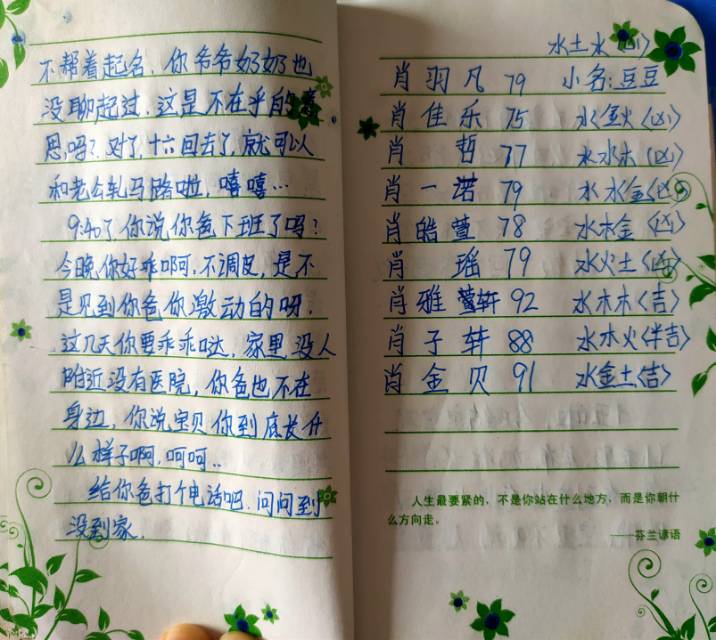 不帮着起名、你爷爷奶奶也
没聊起过，这是不在乎的意
思吗？对了，十六回去了，就可以
和老公轧马路啦，嘻嘻…
9:40了，你说你爸下班了吗？
今晚，你好乖啊，不调皮，是不
是见到你爸你激动的呀，
这几天你要乖乖哒，家里没人
附近没有医院，你爸也不在
身边，你说宝贝你到底长什
么样子啊，呵呵..
给你爸打个电话吧，问问到
没到家
水土水〈凶〉
肖羽凡 79 小名:豆豆
肖佳乐 75 水金火〈凶〉
肖哲 77 水水木〈凶〉
肖一诺 79 水水金〈凶〉
肖皓萱 78 水木金〈凶〉
肖瑶 79 水火土〈凶〉
肖雅轩 92 水木木〈吉〉
肖子轩 88 水木火〈半吉〉
肖金贝 91 水金土〈吉〉
人生最要紧的，不是你站在什么地方，而是你朝什
么方向走。
——芬兰谚语